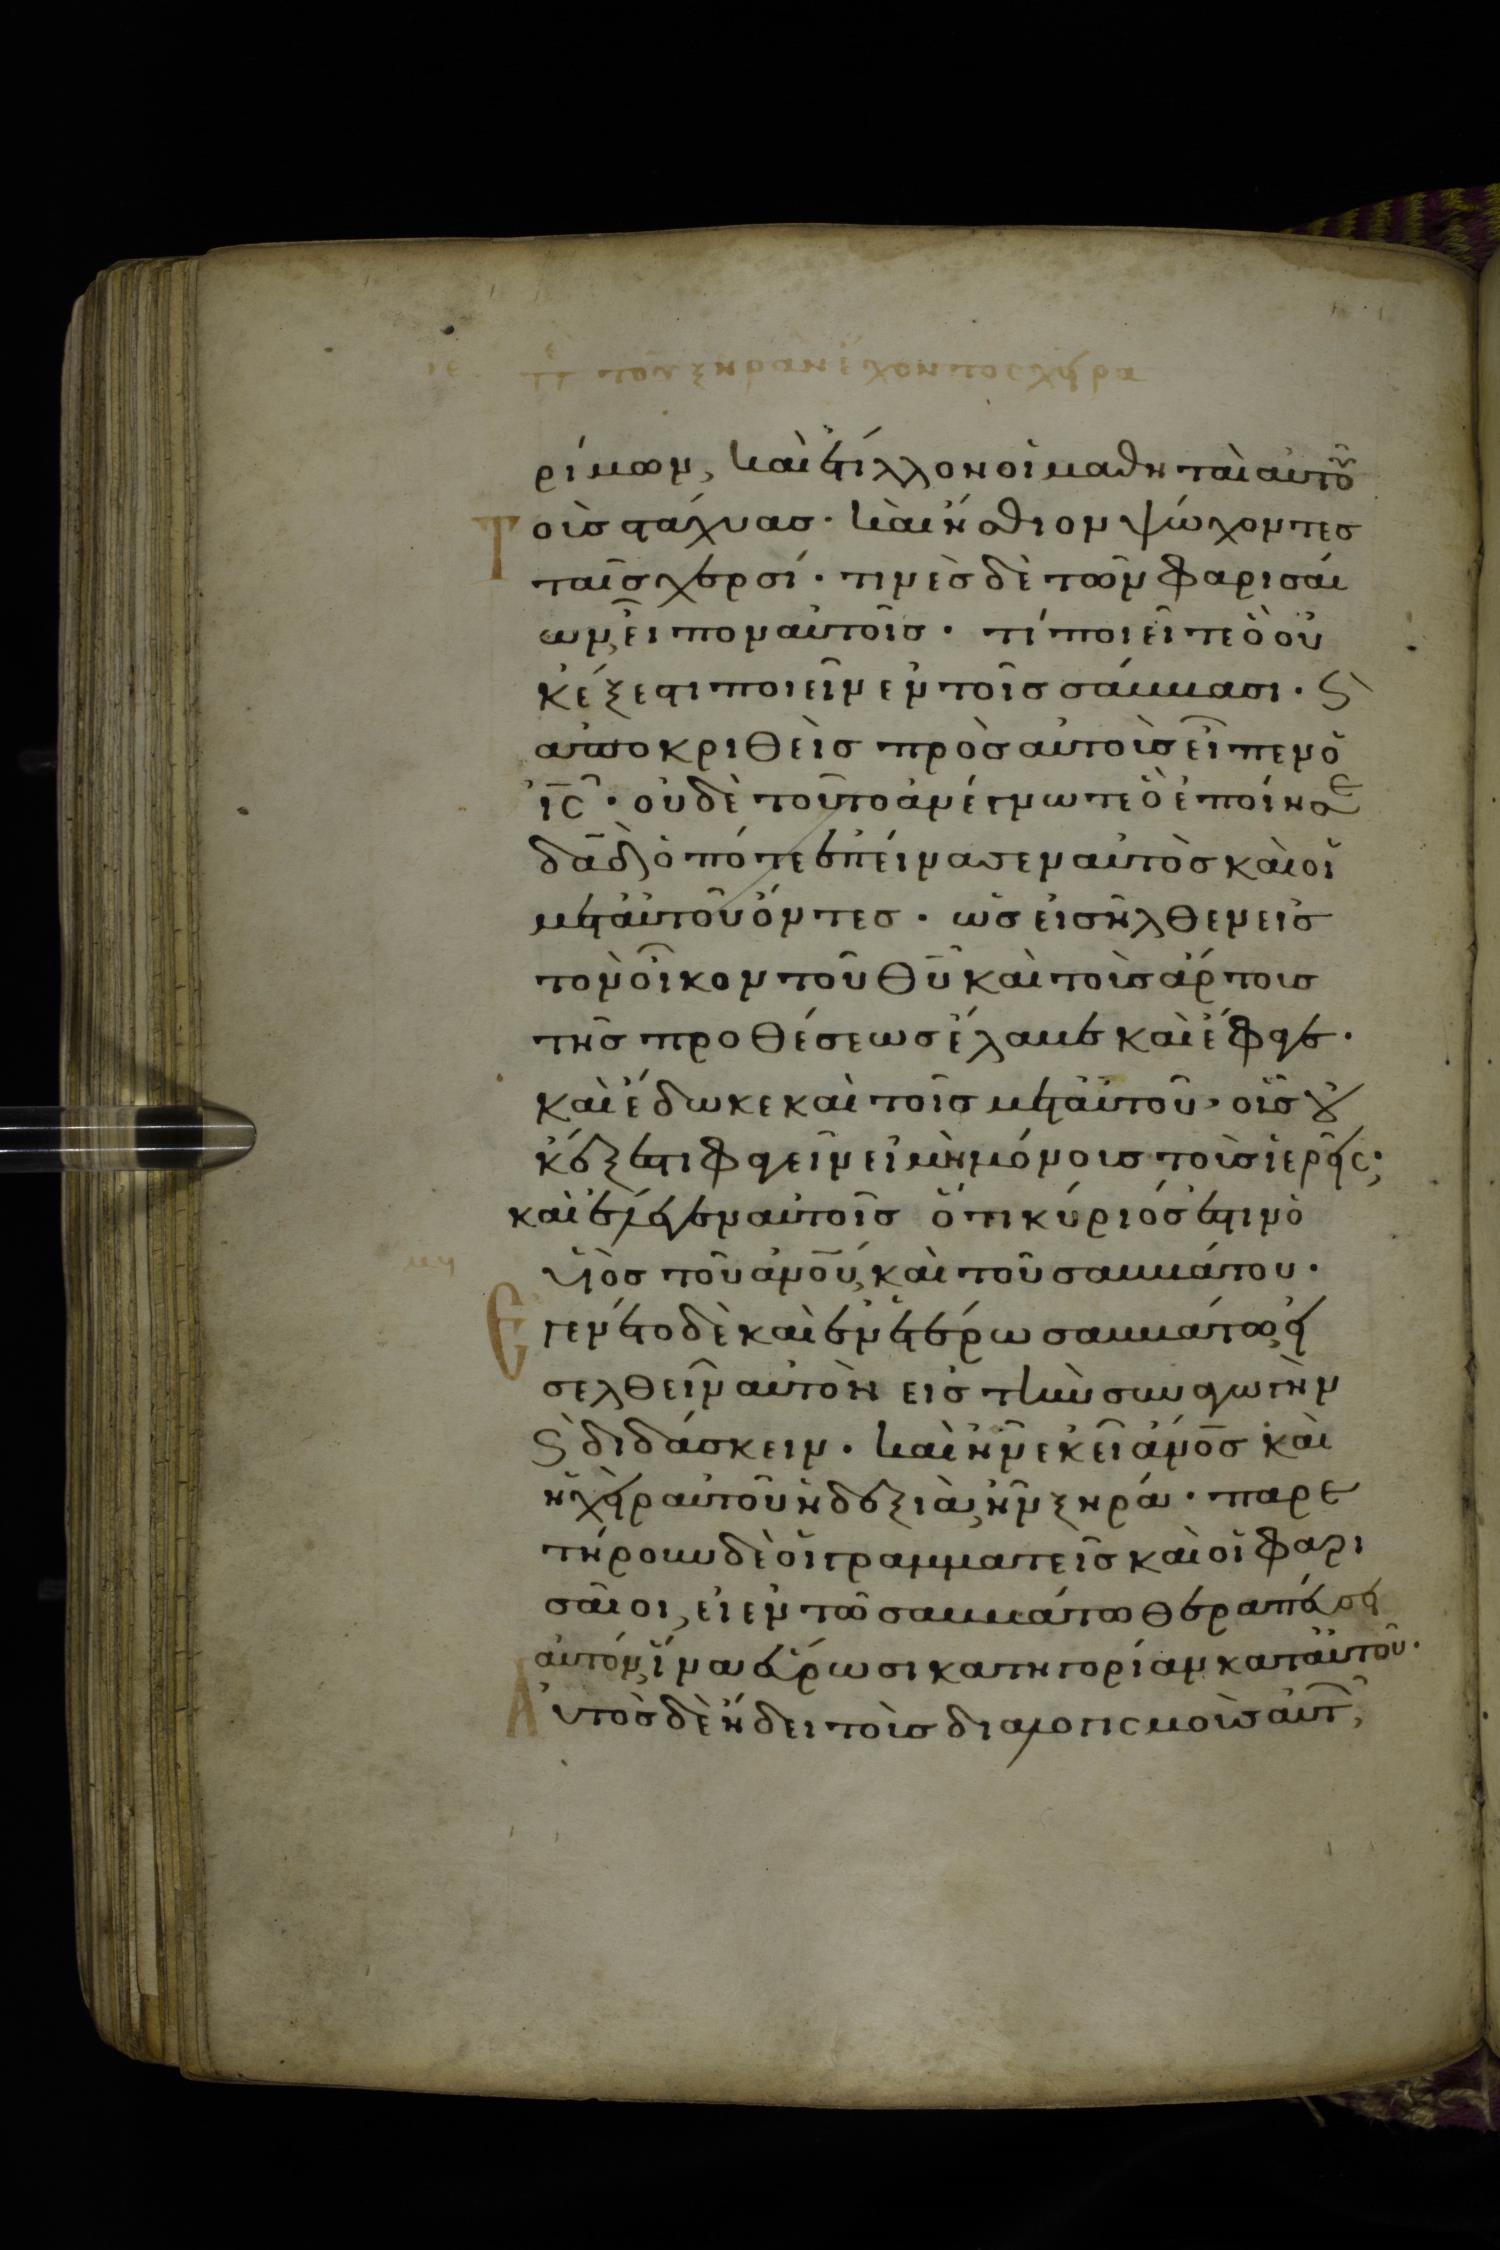 ιε πε τοῦ ξηρὰν ἔχοντος χεῖρα
ρίμων, καὶ ἔτιλλον οἱ μαθηταὶ αὐτοῦ
τοὺς στάχυας· καὶ ἤσθιον ψώχοντες
ταῖς χερσί· τινὲς δὲ τῶν φαρισαί
ων, εἶπον αὐτοῖς· τί ποιεῖτε ὃ οὐ
κ ἔξεστι ποιεῖν ἐν τοῖς σάββασι· ϛ
ἀποκριθεὶς πρὸς αὐτοὺς εἶπεν ὁ
ις· οὐδὲ τοῦτο ἀνέγνωτε ὃ ἐποίησε
δαδ ὁπότε ἐπείνασεν αὐτὸς καὶ οἱ
μετ αὐτοῦ ὄντες· ὡς εἰσῆλθεν εἰς
τὸν οἶκον τοῦ θυ καὶ τοὺς ἄρτους
τῆς προθέσεως ἔλαβε καὶ ἔφαγε·
καὶ ἔδωκε καὶ τοῖς μετ αὐτοῦ, οἷς οὐ
κ ἔξεστι φαγεῖν εἰ μὴ μόνοις τοῖς ἱερεῖς;
καὶ ἔλεγεν αὐτοῖς ὅτι κύριός ἐστιν ὁ
μη υἱὸς τοῦ ανου, καὶ τοῦ σαββάτου·
Εγένετο δὲ καὶ ἐν ἑτέρω σαββάτω, εἰ
σελθεῖν αὐτὸν εἰς τὴν συναγωγὴν
ϛ διδάσκειν· καὶ ἦν ἐκεῖ ανος καὶ
ἡ χεὶρ αὐτοῦ ἡ δεξιὰ, ἦν ξηρά· παρε
τήρουν δὲ οἱ γραμματεῖς καὶ οἱ φαρι
σαῖοι, εἰ ἐν τῶ σαββάτω θεραπεύσει
αὐτόν, ἵνα εὕρωσι κατηγορίαν κατ αὐτοῦ·
Αὐτὸς δὲ ἤδει τοὺς διαλογισμοὺς αὐτ,